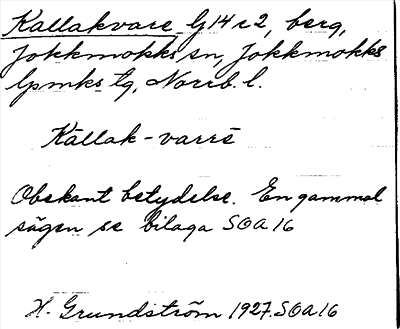 Kallakvare G14 r2, berg,
Jokkmokks sn, Jokkmokks
lpmks tg, Norrb. l.
Kāllak-varrē
Obekant betydelse. En gammal
sägen se bilaga SOA 16
H. Grundström 1927. SOA 16